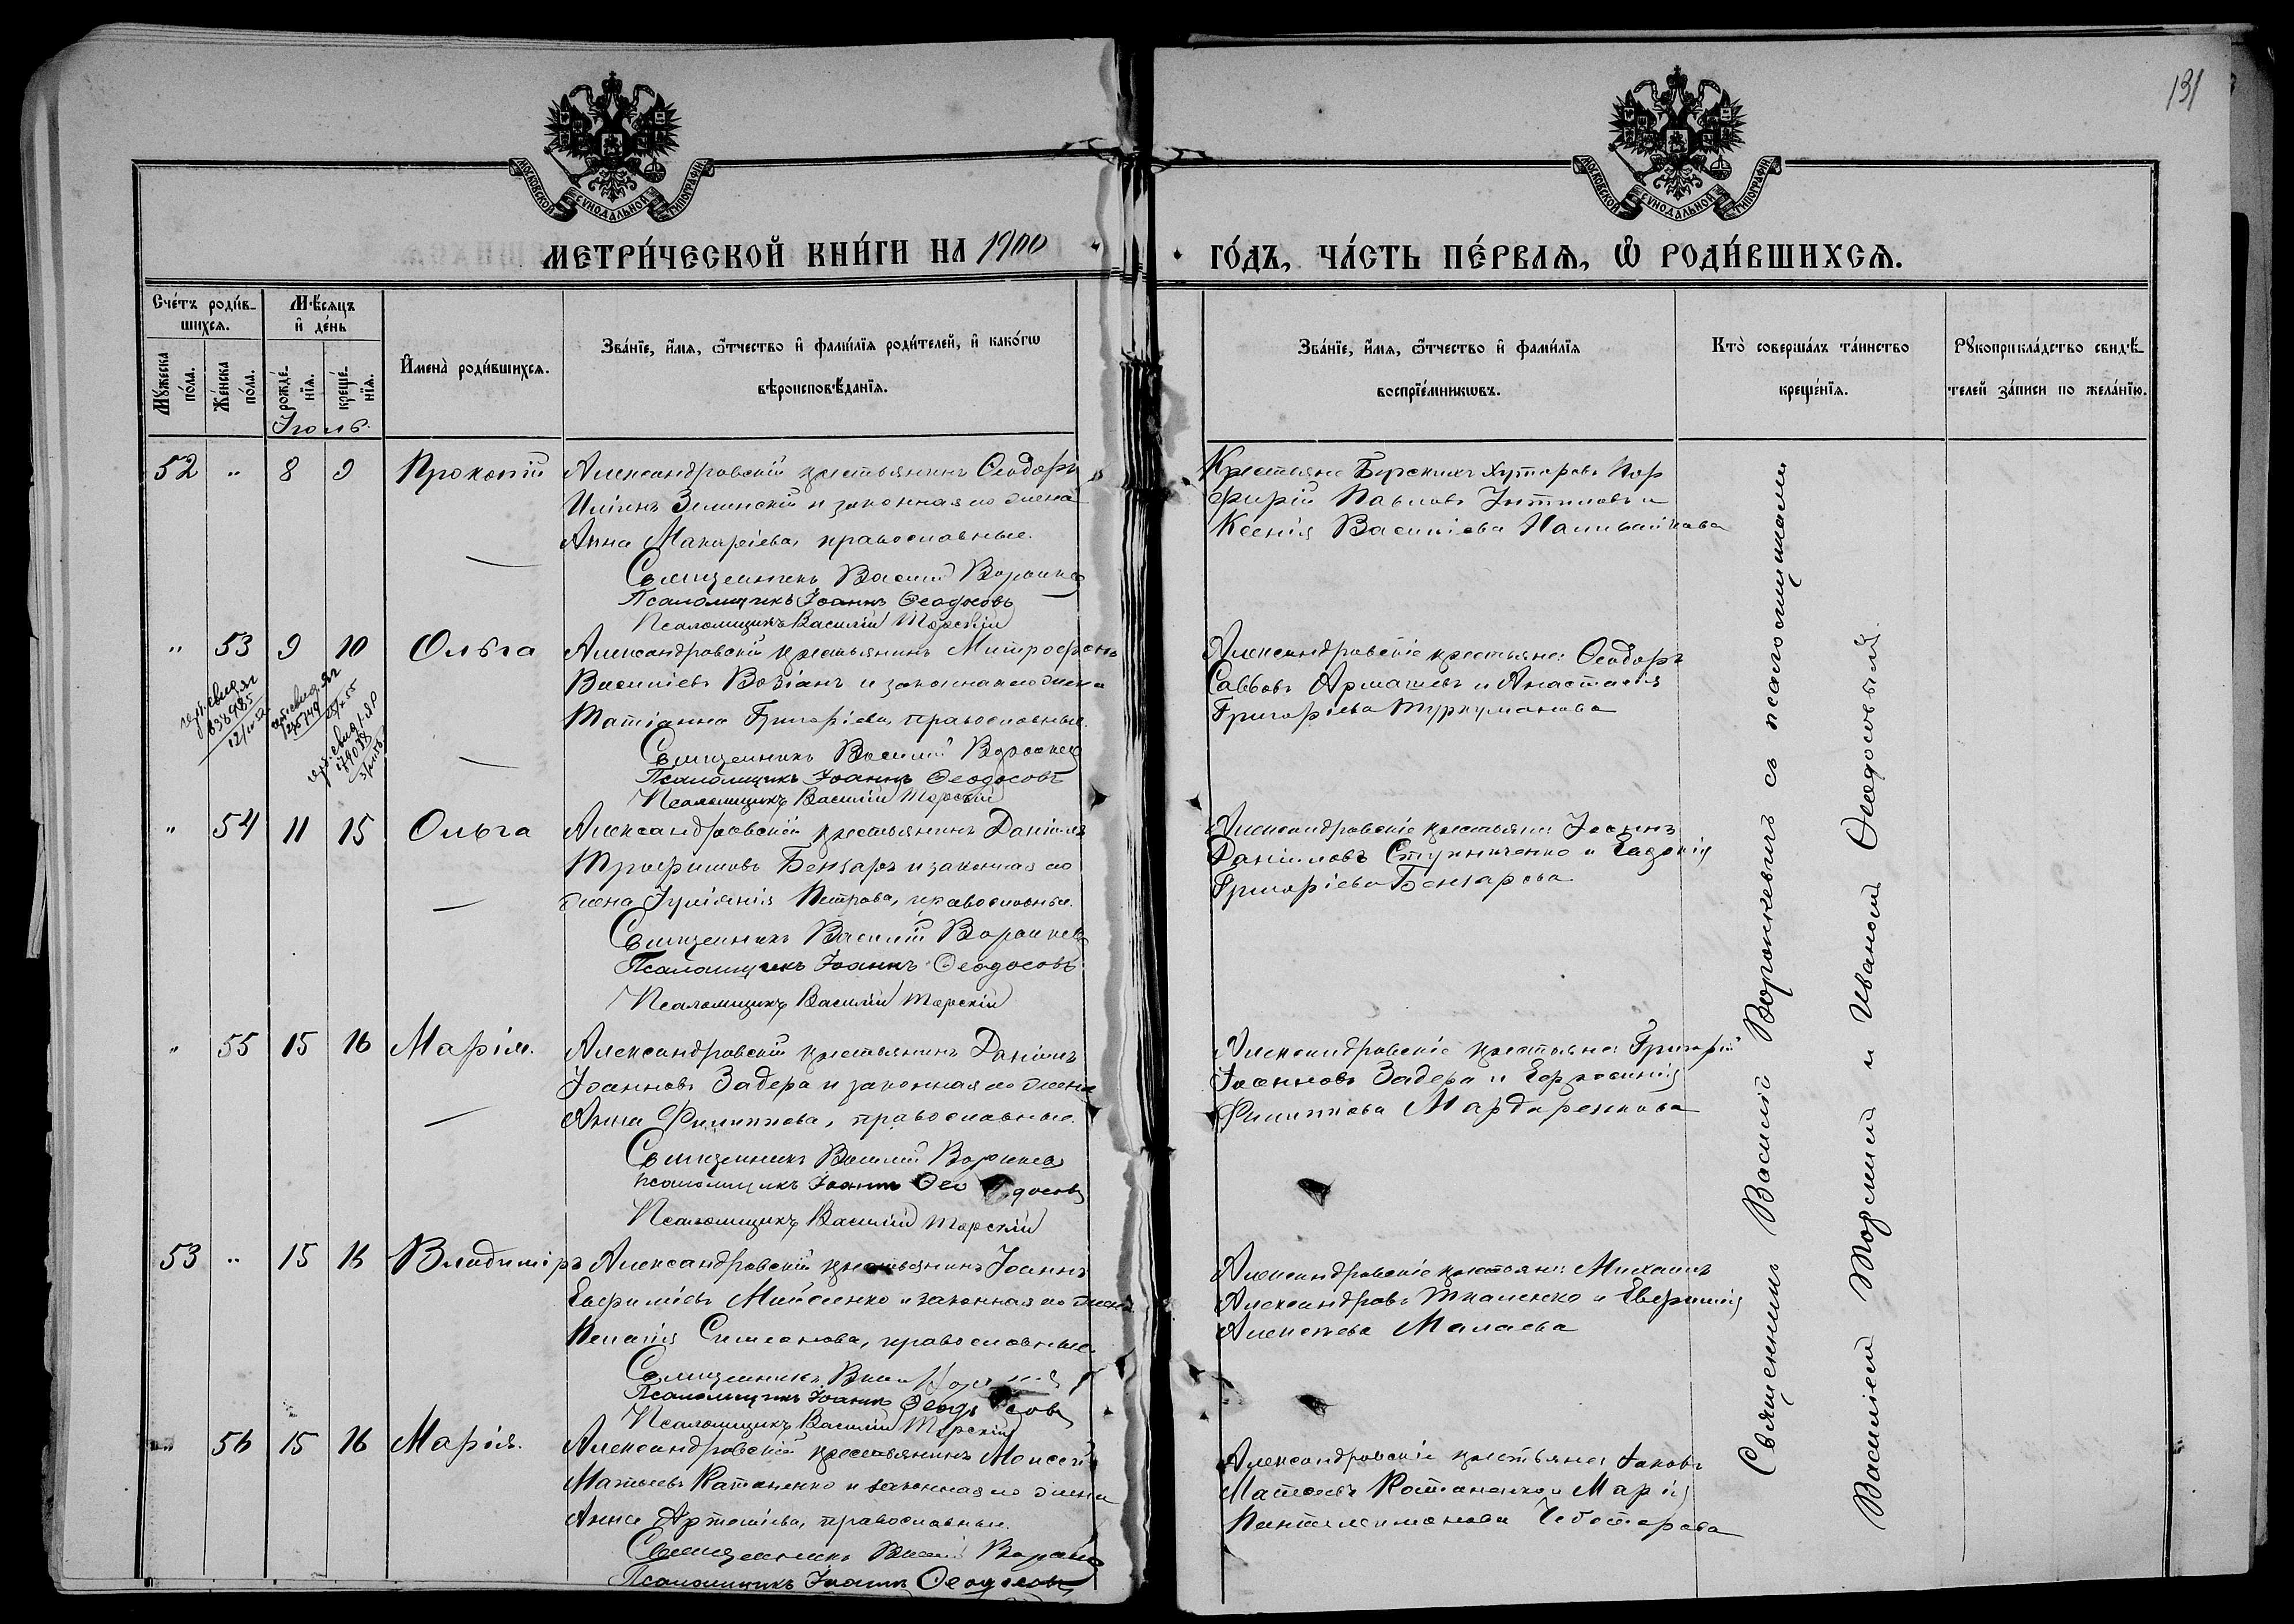 131
МОСКОВСКОЙ СУНОДАЛЬНОЙ ТИПОГРАФІИ
МОСКОВСКОЙ СУНОДАЛЬНОЙ ТИПОГРАФІИ
МЕТРИ́ЧЕСКОЙ КНИ́ГИ НА 1900
ГО́ДЪ, ЧА́СТЬ ПЕ́РВАѦ, Ѡ҆ РОДИ́ВШИХСѦ.
Сче́тъ роди́в-
шихсѧ.
Мꙋ́жеска
по́ла.
Же́нска
по́ла.
Мѣ́сѧцъ
и҆ де́нь
рожде́-
нїѧ.
креще́-
нїѧ.
Іюль.
И҆мена̀ роди́вшихсѧ.
Зва́нїе, и҆́мѧ, ѻ҆́тчество и҆ фамі́лїѧ роди́телей, и҆ како́гѡ
вѣроисповѣ́данїѧ.
Зва́нїе, и҆́мѧ, ѻ҆́тчество и҆ фами́лїѧ
воспрїе́мникѡвъ.
Кто̀ соверша́лъ та́инство
креще́нїѧ.
Рꙋкоприкла́дство свидѣ́-
телей за́писи по жела́нїю.
52 " 8 9 Прокопій
Александровскій крестьянинъ Ѳеодоръ
Иліинъ Зелинскій и законная его жена
Анна Макаріева, православные.
Священникъ Василій Воронке
Псаломщикъ Іоаннъ Ѳеодосовъ
Псаломщикъ Василій Торскій
Крестьяне Бурскихъ хуторовъ Пор
фирій Павловъ и
Ксенія Василіева Наливайкова
" 53 9 10 Ольга
Александровскій крестьянинъ Митрофанъ
Василіевъ Возіанъ и законная его жена
Татіанна Григоріева, православные.
Священникъ Василій Воронке
Псаломщикъ Іоаннъ Ѳеодосовъ
Псаломщикъ Василій Торскій
Александровскіе крестьяне: Ѳеодоръ
Саввовъ Армашевъ и Анастасія
Григоріева Туркуманова
" 54 11 15 Ольга
Александровскій крестьянинъ Даніилъ
Трофимовъ Бензарь и законная его
жена Іуліанія Петрова, православные.
Священникъ Василій Воронке
Псаломщикъ Іоаннъ Ѳеодосовъ
Псаломщикъ Василій Торскій
Александровскіе крестьяне: Іоаннъ
Даніиловъ Ступниченко и Евдокія
Григоріева Бензарева
" 55 15 16 Марія.
Александровскій крестьянинъ Даніилъ
Іоанновъ Задера и законная его жена
Анна Филиппова, православные.
Священникъ Василій Воронке
Псаломщикъ Іоаннъ Ѳеодосовъ
Псаломщикъ Василій Торскій
Александровскіе крестьяне: Григорій
Іоанновъ Задера и Евфросинія
Филиппова Мардаренкова
53 " 15 16 Владиміръ
Александровскій крестьянинъ Іоаннъ
Евфиміевъ Мойсенко и законная его жена
Пелагія Симеонова, православные.
Священникъ
Псаломщикъ Іоаннъ Ѳеодосовъ
Псаломщикъ Василій Торскій
Александровскіе крестьяне: Михаилъ
Александровъ Ткаленко и Евфимія
Алексѣева Малаева
" 56 15 16 Марія.
Александровскій крестьянинъ Моисей
Матѳеевъ Катаненко и законная его жена
Анна Артеміева, православные.
Священникъ Василій Воронке
Псаломщикъ Іоаннъ Ѳеодосовъ
Александровскіе крестьяне: Іаковъ
Матѳеевъ Катаненко и Марія
Пантелеимонова Чеботарева
Священникъ Василій Воронкевичъ съ псаломщиками
Василіемъ Торскимъ и Иваномъ Ѳеодосовымъ.